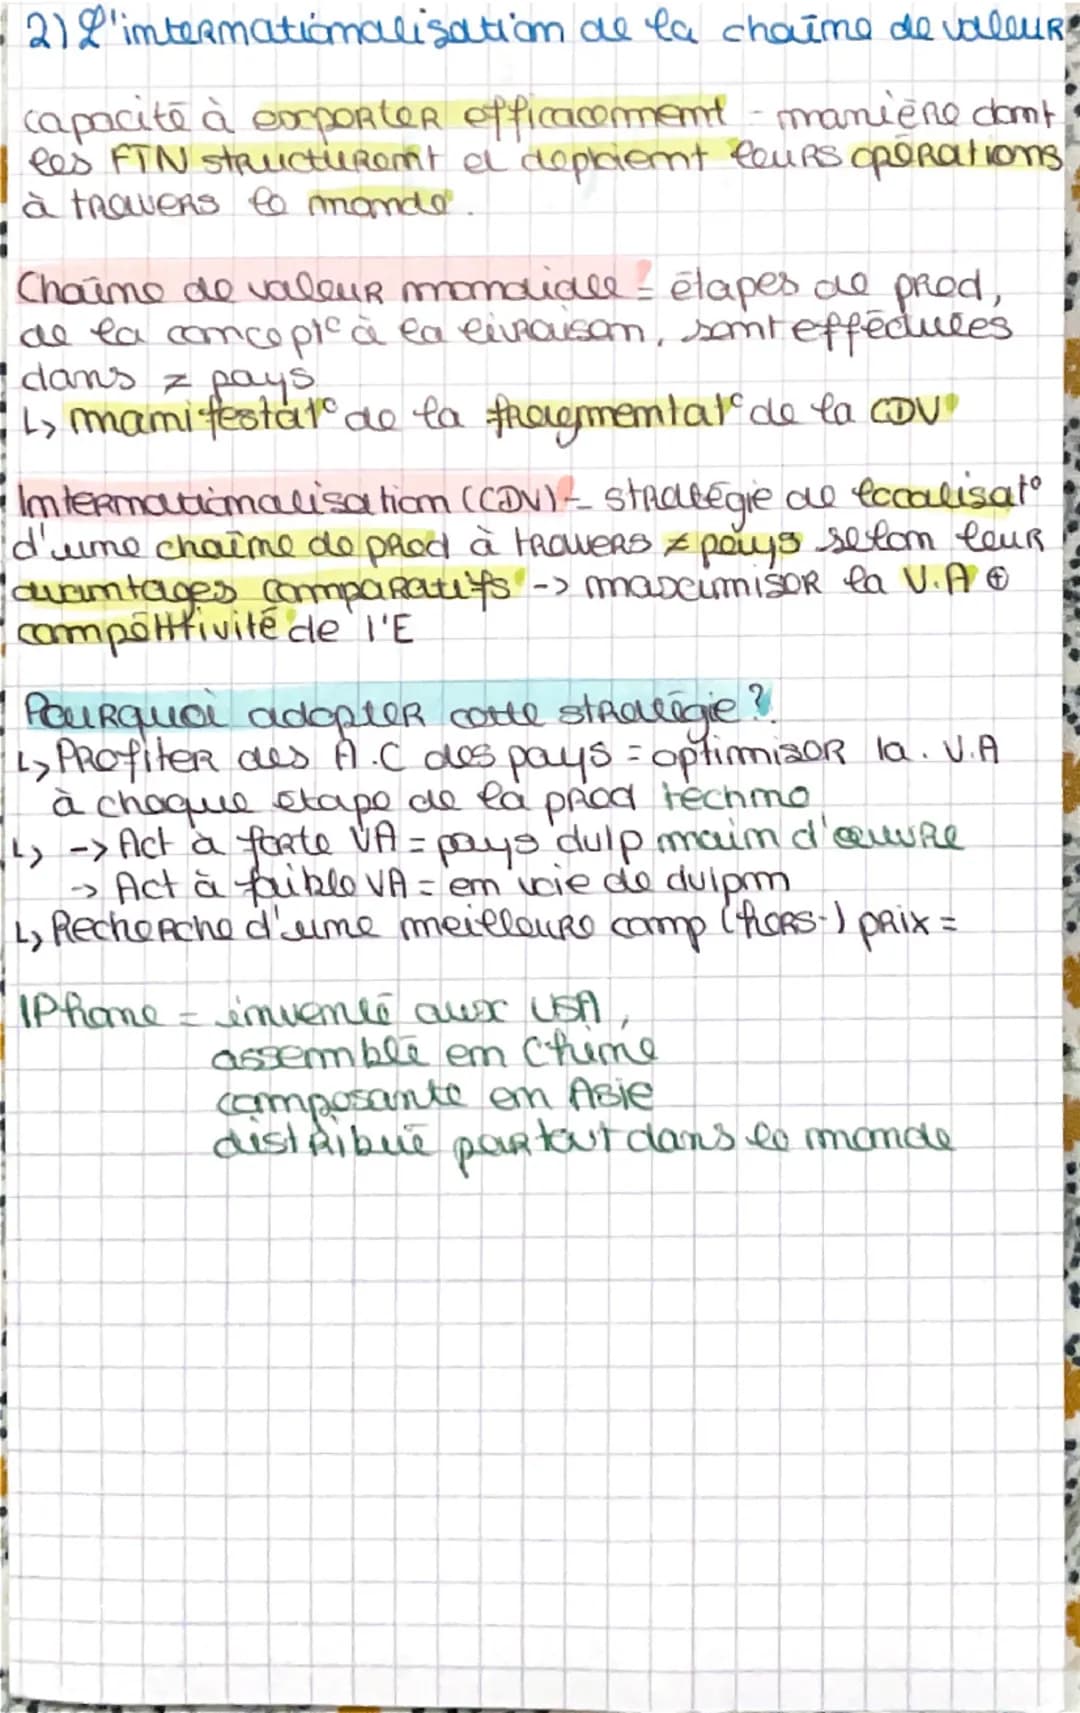 2) L'internationalisation de la chaîne de valeur
capacité à exporter efficacement - manière dont
les FTN structuront et deploient leurs opérations
à travers le monde.
Chaîne de valeur mondiale = étapes de prod,
de la concept° à la livraison, sont effectuées
dans ≠ pays
↳ manifestat° de la fragmentat° de la CDV
Internationalisation (CDV) = stratégie de localisat°
d'une chaîne de prod à travers ≠ pays selon leur
avantages comparatifs -> maximiser la V.A ⊕
compétitivité de l'E
Pourquoi adopter cette stratégie ?
↳ Profiter des A.C des pays = optimiser la . V.A
à chaque étape de la prod techno
↳ -> Act à forte VA = pays dvlp main d'œuvre
-> Act à faible VA = en voie de dvlpm
↳ Recherche d'une meilleure comp (hors-) prix =
IPhone = inventé aux USA,
assemblé en Chine
composante en Asie
distribué partout dans le monde